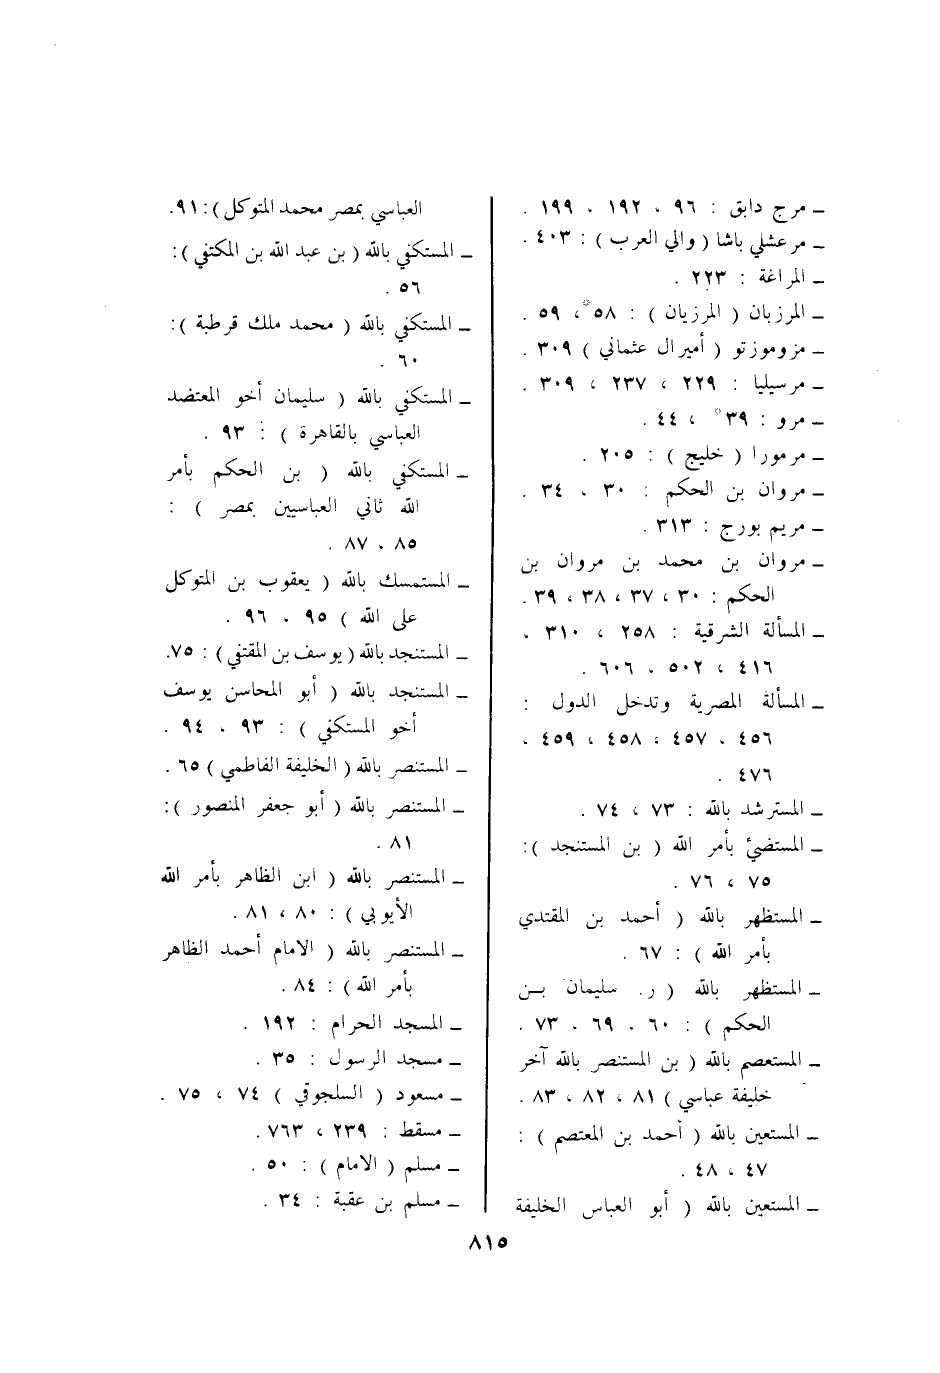 ـ مرج دابق : ٩٦ ، ١٩٢ ، ١٩٩ .
ـ مرعشلي باشا ( والي العرب ) : ٤٠٣ .
ـ المراغة : ٢٢٣ .
ـ المرزبان ( المرزيان ) : ٥٨* ، ٥٩ .
ـ مزوموزتو ( أميرال عثماني ) ٣٠٩ .
ـ مرسيليا : ٢٢٩ ، ٢٣٧ ، ٣٠٩ .
ـ مرو : ٣٩* ، ٤٤ .
ـ مرمورا ( خليج ) : ٢٠٥ .
ـ مروان بن الحكم : ٣٠ ، ٣٤ .
ـ مريم بورج : ٣١٣ .
ـ مروان بن محمد بن مروان بن
الحكم : ٣٠ ، ٣٧ ، ٣٨ ، ٣٩ .
ـ المسألة الشرقية : ٢٥٨ ، ٣١٠ ،
٤١٦ ، ٥٠٢ ، ٦٠٦ .
ـ المسألة المصرية وتدخل الدول :
٤٥٦ ، ٤٥٧ ، ٤٥٨ ، ٤٥٩ ،
٤٧٦ .
ـ المسترشد بالله : ٧٣ ، ٧٤ .
ـ المستضئ بأمر الله ( بن المستنجد ) :
٧٥ ، ٧٦ .
ـ المستظهر بالله ( أحمد بن المقتدي
بأمر الله ) : ٦٧ .
ـ المستظهر بالله ( ر. سليمان بن
الحكم ) : ٦٠ ، ٦٩ ، ٧٣ .
ـ المستعصم بالله ( بن المستنصر بالله آخر
خليفة عباسي ) ٨١ ، ٨٢ ، ٨٣ .
ـ المستعين بالله ( أحمد بن المعتصم ) :
٤٧ ، ٤٨ .
ـ المستعين بالله ( أبو العباس الخليفة
العباسي بمصر محمد المتوكل ) : ٩١ .
ـ المستكفي بالله ( بن عبد الله بن المكتفي ) :
٥٦ .
ـ المستكفي بالله ( محمد ملك قرطبة ) :
٦٠ .
ـ المستكفي بالله ( سليمان أخو المعتضد
العباسي بالقاهرة ) : ٩٣ .
ـ المستكفي بالله ( بن الحكم بأمر
الله ثاني العباسيين بمصر ) :
٨٥ ، ٨٧ .
ـ المستمسك بالله ( يعقوب بن المتوكل
على الله ) ٩٥ ، ٩٦ .
ـ المستنجد بالله ( يوسف بن المقتفي ) : ٧٥ .
ـ المستنجد بالله ( أبو المحاسن يوسف
أخو المستكفي ) : ٩٣ ، ٩٤ .
ـ المستنصر بالله ( الخليفة الفاطمي ) ٦٥ .
ـ المستنصر بالله ( أبو جعفر المنصور ) :
٨١ .
ـ المستنصر بالله ( ابن الظاهر بأمر الله
الأيوبي ) : ٨٠ ، ٨١ .
ـ المستنصر بالله ( الامام أحمد الظاهر
بأمر الله ) : ٨٤ .
ـ المسجد الحرام : ١٩٢ .
ـ مسجد الرسول : ٣٥ .
ـ مسعود ( السلجوقي ) ٧٤ ، ٧٥ .
ـ مسقط : ٢٣٩ ، ٧٦٣ .
ـ مسلم ( الامام ) : ٥٠ .
ـ مسلم بن عقبة : ٣٤ .
٨١٥